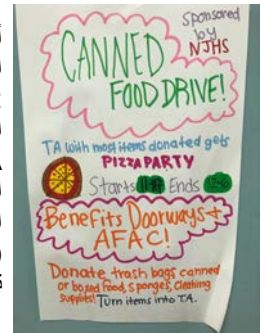 Sponsored
by
NJHS
CANNED
FOOD DRIVE!
TA with most items donated gets
PIZZA PARTY
Starts Ends
Benefits Doorways +
AFAC!
Donate trash bags canned
or boxed food, sponges, cleaning
supplies! Turn items into TA.